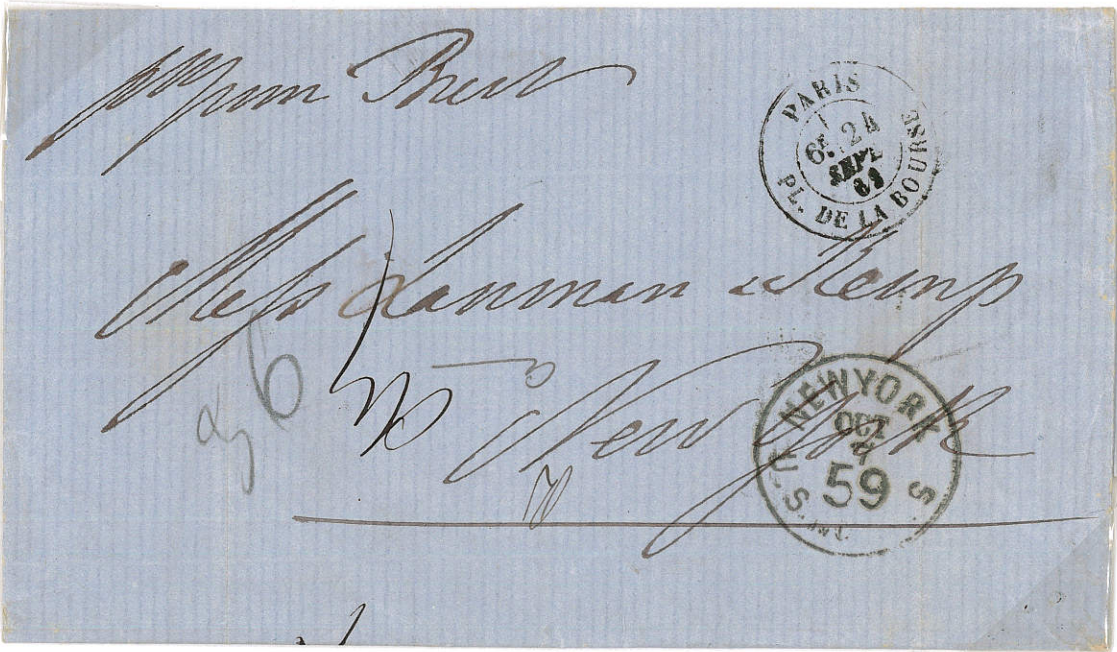 Brest
PARIS
6E 24
SEPT
69
PL. DE LA BOURSE
Mess Lanman & Kemp
à New York
NEW YORK
OCT
7
59
U. S. S
INT.
6